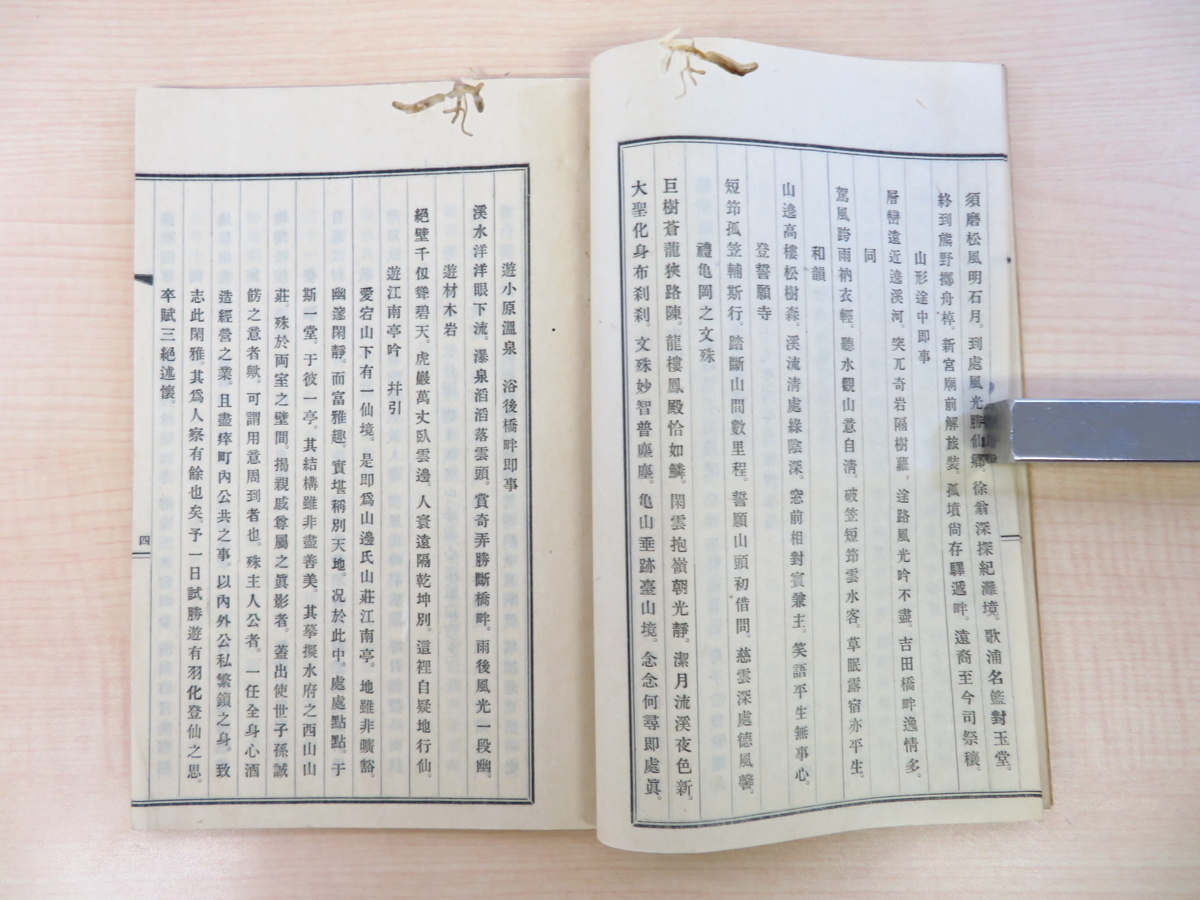 須磨松風明石月。到處風光勝仙鄉。徐翁深探紀灘境。歌浦名籃對玉堂。
終到熊野擲舟棹。新宮廟前解旅裝。孤墳尙存驛遞畔。遠裔至今司祭穰。
山形途中即事
層巒遠近遶溪河。突兀奇岩隔樹蘿。途路風光吟不盡。吉田橋畔逸情多。
同
駕風跨雨衲衣輕。聽水觀山意自淸。破笠短筇雲水客。草眠露宿亦平生。
和韻
山邊高樓松樹森。溪流淸處綠陰深。窓前相對賓兼主。笑語平生無事心。
登誓願寺
短筇孤笠輔斯行。踏斷山間數里程。誓願山頭初借問。慈雲深處德風馨。
禮亀岡之文殊
巨樹蒼龍狹路陳。龍樓鳳殿恰如鱗。閑雲抱嶺朝光靜。潔月流溪夜色新。
大聖化身布刹刹。文殊妙智普塵塵。亀山垂跡臺山境。念念何尋即處眞。
遊小原溫泉 浴後橋畔即事
溪水洋洋眼下流。瀑泉滔滔落雲頭。賞奇弄勝斷橋畔。雨後風光一段幽。
遊材木岩
絕壁千仭聳碧天。虎巖萬丈臥雲邊。人寰遠隔乾坤別。這裡自疑地行仙。
遊江南亭吟 幷引
愛宕山下有一仙境。是即爲山邊氏山莊江南亭。地雖非曠豁。
幽邃閑靜。而富雅趣。實堪稱別天地。况於此中。處處點點。于
斯一堂。于彼一亭。其結構雖非盡善美。其摹擬水府之西山山
莊。殊於兩室之壁間。揭親戚尊屬之眞影者。蓋出使世子孫誠
飭之意者歟。可謂用意周到者也。殊主人公者。一任全身心酒
造經營之業。且盡瘁町內公共之事。以內外公私繁鎖之身。致
志此閑雅。其爲人察有餘也矣。予一日試勝遊有羽化登仙之思。
卒賦三絕述懷。
四